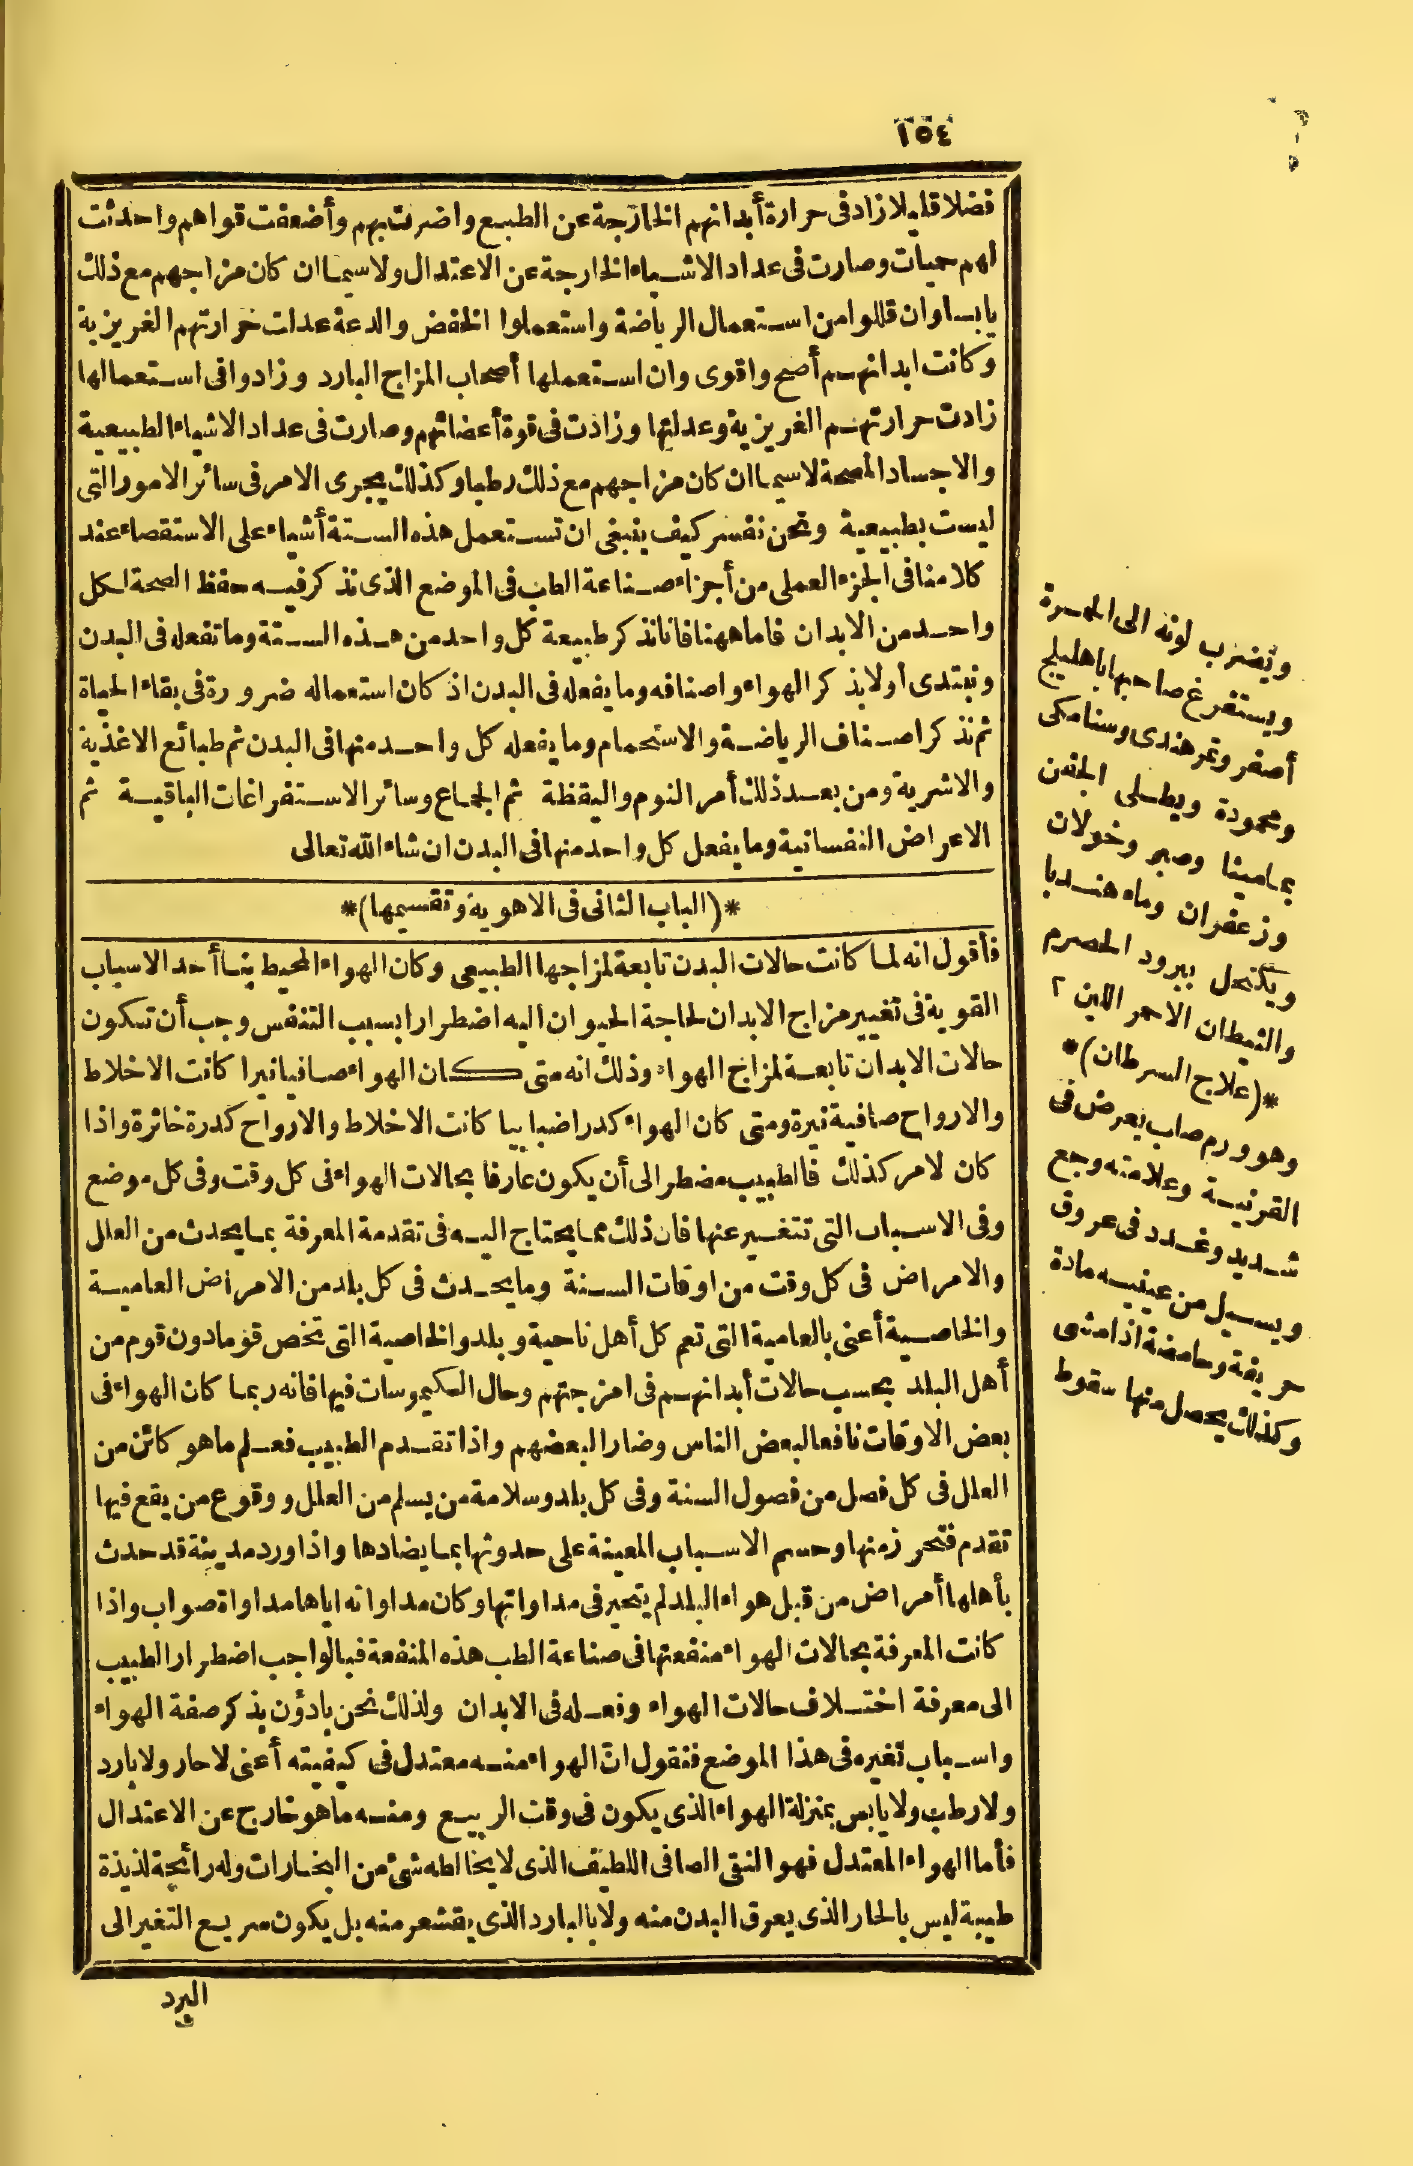 ١٥٤
فضلا قليلا زاد فى حرارة أبدانهم الخارجة عن الطبع واضرت بهم وأضعفت قواهم واحدثت
لهم حميات وصارت فى عداد الاشياء الخارجة عن الاعتدال ولاسيما ان كان مزاجهم مع ذلك
يابسا وان قللوا من استعمال الرياضة واستعملوا الخفض والدعة عدلت حرارتهم الغريزية
وكانت ابدانهم أصح واقوى وان استعملها أصحاب المزاج البارد وزادوا فى استعمالها
زادت حرارتهم الغريزية وعدلتها وزادت فى قوة أعضائهم وصارت فى عداد الاشياء الطبيعية
والاجساد المصححة لاسيما ان كان مزاجهم مع ذلك رطبا وكذلك يجرى الامر فى سائر الامور التى
ليست بطبيعية ونحن نفسر كيف ينبغى ان تستعمل هذه الستة أشياء على الاستقصاء عند
كلامنا فى الجزء العملى من أجزاء صناعة الطب فى الموضع الذى نذكر فيه حفظ الصحة لكل
واحد من الابدان فاما ههنا فانا نذكر طبيعة كل واحد من هذه الستة وما تفعله فى البدن
ونبتدى أولا بذكر الهواء واصنافه وما يفعله فى البدن اذ كان استعماله ضرورة فى بقاء الحياة
ثم نذكر اصناف الرياضة والاستحمام وما يفعله كل واحد منها فى البدن ثم طبائع الاغذية
والاشربة ومن بعد ذلك أمر النوم واليقظة ثم الجماع وسائر الاستفراغات الباقية ثم
الاعراض النفسانية وما يفعل كل واحد منها فى البدن ان شاء الله تعالى
*(الباب الثانى فى الاهوية وتقسيمها)*
فأقول انه لما كانت حالات البدن تابعة لمزاجها الطبيعى وكان الهواء المحيط بنا أحد الاسباب
القوية فى تغيير مزاج الابدان لحاجة الحيوان اليه اضطرارا بسبب التنفس وجب أن تكون
حالات الابدان تابعة لمزاج الهواء وذلك انه متى كان الهواء صافيا نيرا كانت الاخلاط
والارواح صافية نيرة ومتى كان الهواء كدرا ضبابيا كانت الاخلاط والارواح كدرة خائرة واذا
كان لامر كذلك فالطبيب مضطر الى أن يكون عارفا بحالات الهواء فى كل وقت وفى كل موضع
وفى الاسباب التى تتغير عنها فان ذلك مما يحتاج اليه فى تقدمة المعرفة بما يحدث من العلل
والامراض فى كل وقت من اوقات السنة وما يحدث فى كل بلد من الامراض العامية
والخاصية أعنى بالعامية التى تعم كل أهل ناحية وبلد والخاصية التى تخص قوما دون قوم من
أهل البلد بحسب حالات أبدانهم فى امزجتهم وحال الكيموسات فيها فانه ربما كان الهواء فى
بعض الاوقات نافعا لبعض الناس وضارا لبعضهم واذا تقدم الطبيب فعلم ما هو كائن من
العلل فى كل فصل من فصول السنة وفى كل بلد وسلامة من يسلم من العلل ووقوع من يقع فيها
تقدم فتحرز منها وحسم الاسباب المعينة على حدوثها بما يضادها واذا ورد مدينة قد حدث
بأهلها أمراض من قبل هواء البلد لم يتحير فى مداواتها وكان مداواته اياها مداواة صواب واذا
كانت المعرفة بحالات الهواء منفعتها فى صناعة الطب هذه المنفعة فبالواجب اضطرار الطبيب
الى معرفة اختلاف حالات الهواء وفعله فى الابدان ولذلك نحن بادؤن بذكر صفة الهواء
واسباب تغيره فى هذا الموضع فنقول انّ الهواء منه معتدل فى كيفيته أعنى لا حار ولا بارد
ولا رطب ولا يابس بمنزلة الهواء الذى يكون فى وقت الربيع ومنه ما هو خارج عن الاعتدال
فأما الهواء المعتدل فهو النقى الصافى اللطيف الذى لا يخالطه شئ من البخارات وله رائحة لذيذة
طيبة ليس بالحار الذى يعرق البدن منه ولا بالبارد الذى يقشعر منه بل يكون سريع التغير الى
البرد
وتضرب لونه الى الحمرة
ويستفرغ صاحبها باهليلج
أصفر وتمر هندى وسنامكى
ومحمودة ويطلى الجفن
بماميثا وصبر وخولان
وزعفران وماء هندبا
ويكتحل ببرود الحصرم
والشيطان الاحمر اللين ٢
*(علاج السرطان)*
وهو ورم صلب يعرض فى
القرنية وعلامته وجع
شديد وتمدد فى عروق
ويسيل من عينيه مادة
حريفة وحامضة اذا مشى
وكذلك يحصل منها سقوط